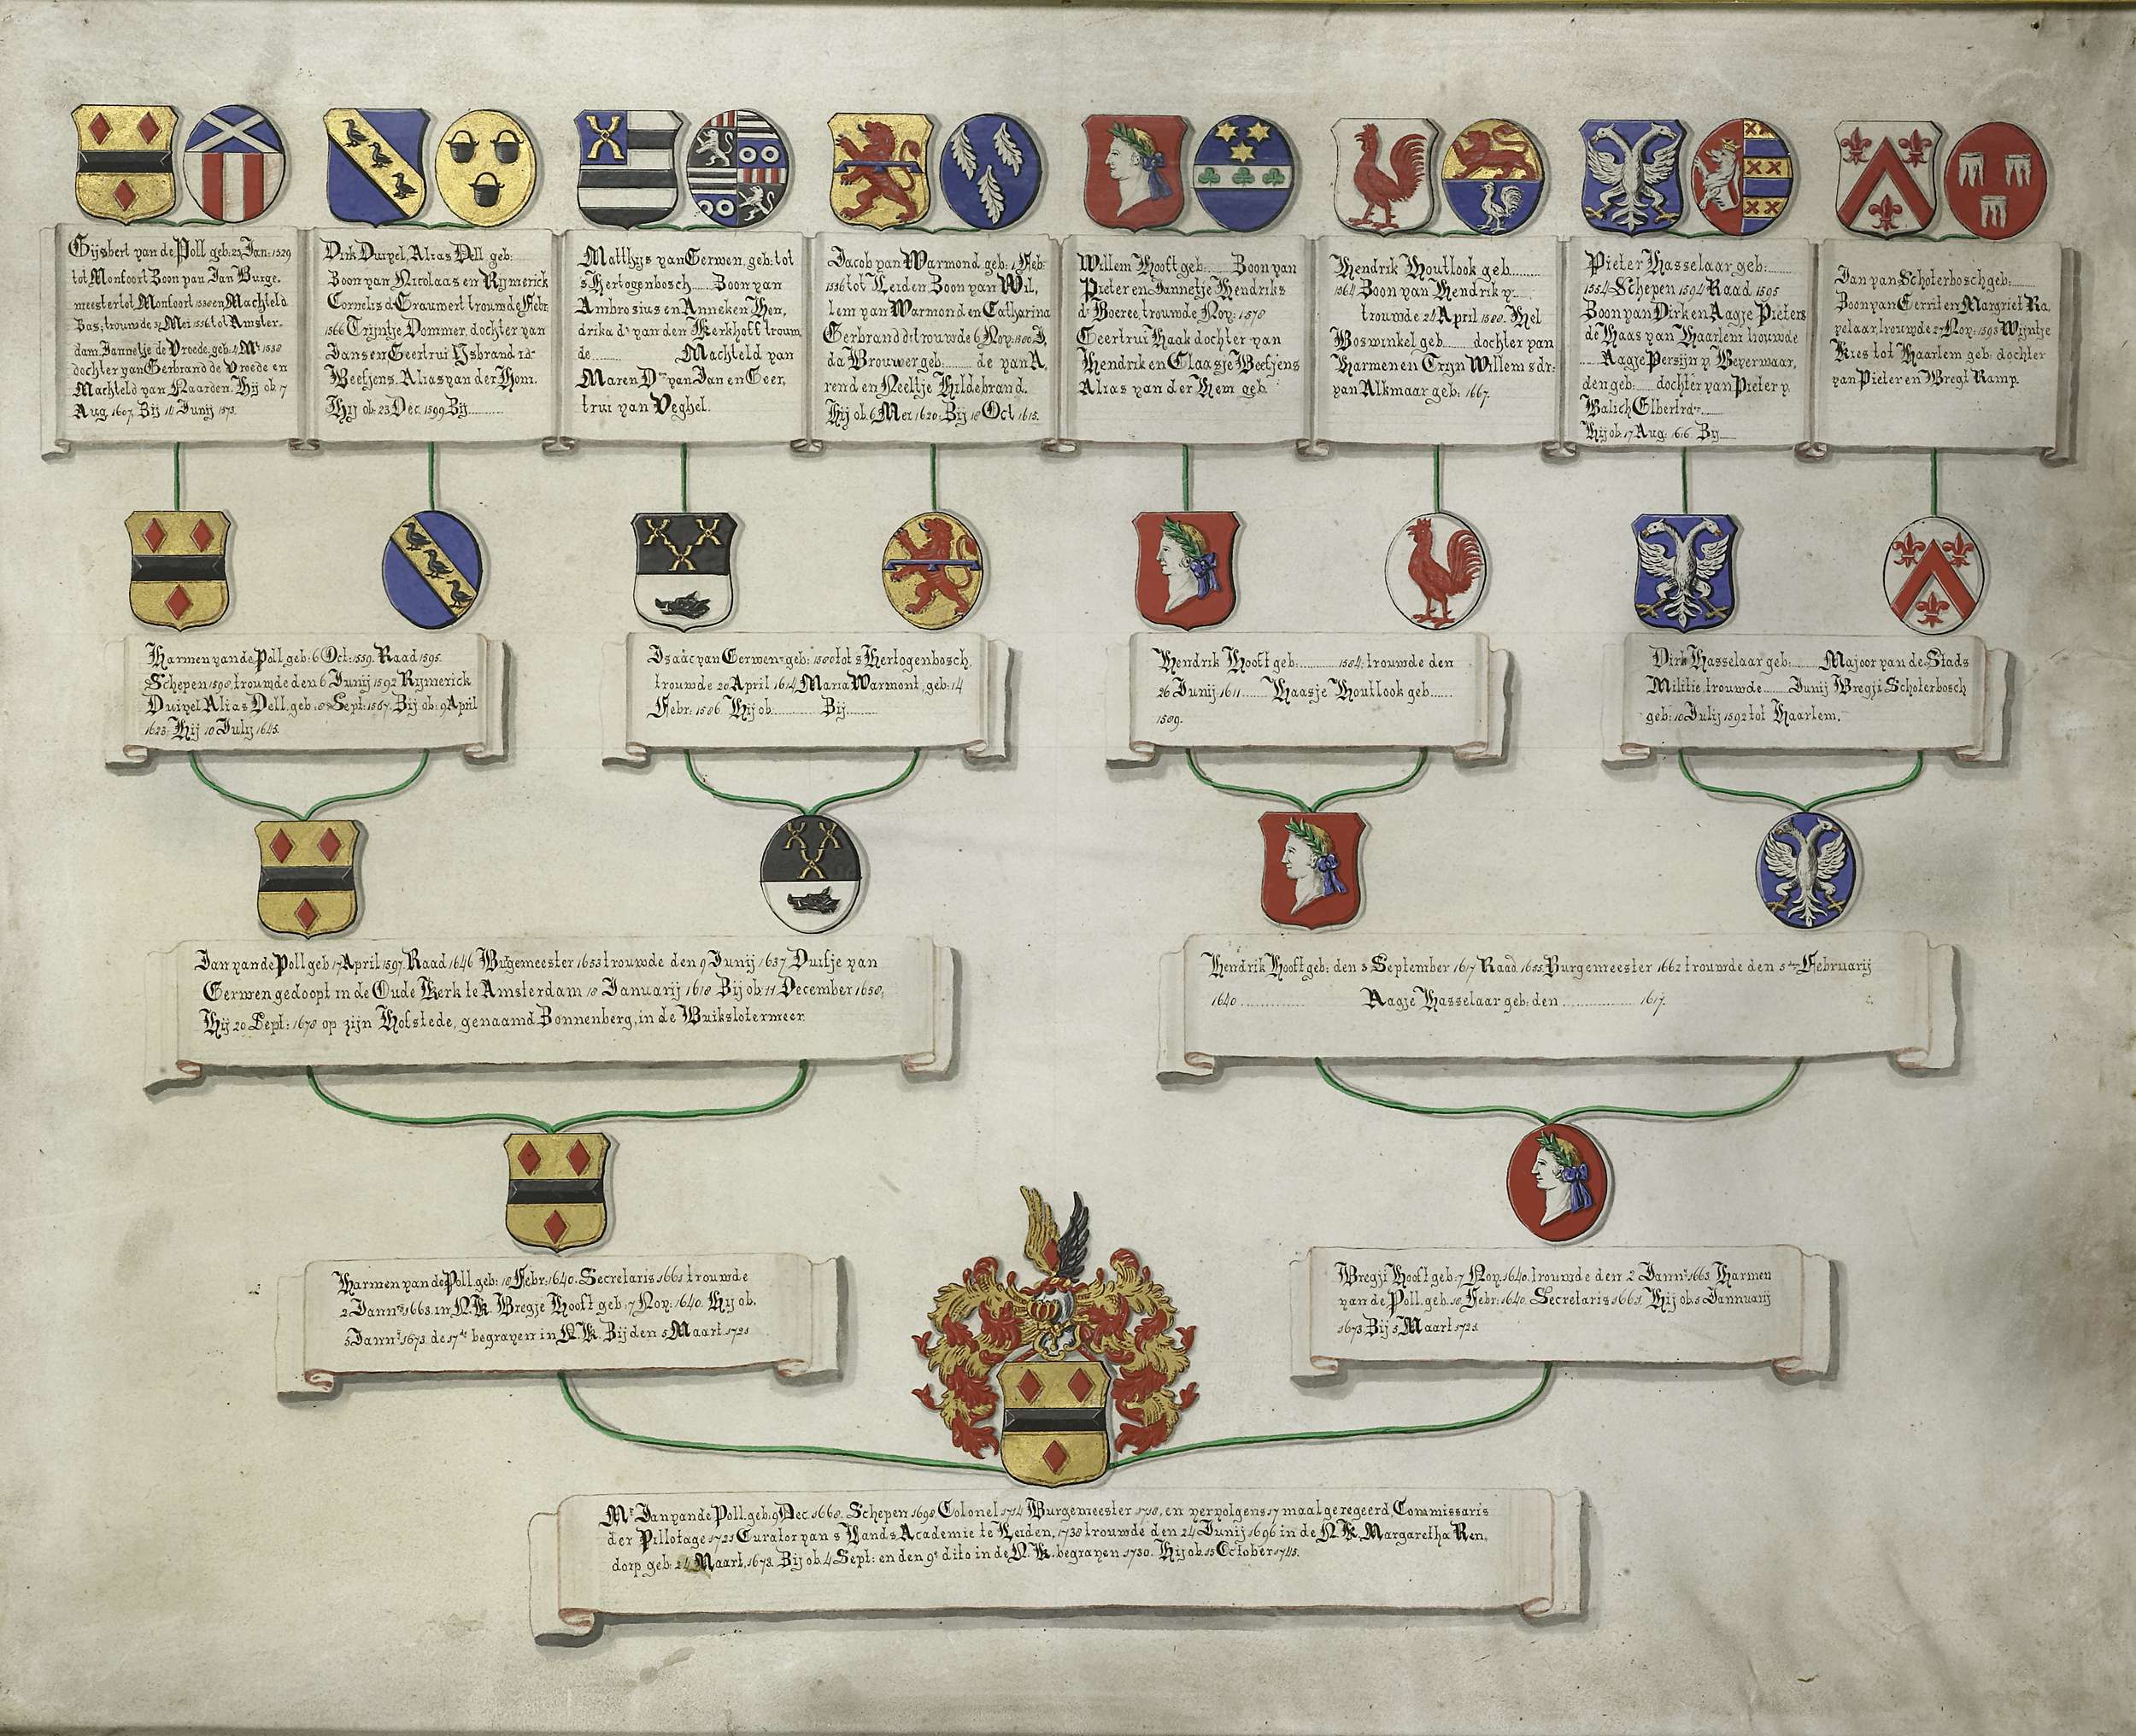 Gijsbert van de Poll geb: 25 Jan: 1529
tot Monfoort Zoon van Jan Burge-
meester tot Monfoort en Machteld
Bas; trouwde Mei 1556 tot Amster-
dam Jannetje de Vroede, geb: 1538
dochter van Gerbrand de Vroede en
Machteld van Naarden. Hij ob: 7
Aug. 1607. Zij Junij 1573.
Dirk Duivel, Alias Dell geb:
Zoon van Nicolaas en Rijmerick
Cornelis d. Grauwert trouwde Febr:
1566 Trijntje Dommer, dochter van
Jans en Geertrui Ysbrand
Beetjens. Alias van der Hom.
Hij ob: 23 Dec. 1599. Zij
Matthijs van Gerwen, geb: tot
s Hertogenbosch Zoon van
Ambrosius en Anneken Hen,
drika dr van den Kerkhoff trouw
de Machteld van
Maren Dr van Jan en Geer,
trui van Veghel.
Jacob van Warmond geb: 1 Feb:
1556 tot Leiden Zoon van Wil,
lem van Warmond en Catharina
Gerbrand dr trouwde 6 Nov: 1580 I,
da Brouwer geb: de van A,
rend en Neeltje Hildebrand.
Hij ob. 6 Mei 1620: Zij 18 Oct 1615.
Willem Hooft geb: Zoon van
Pieter en Jannetje Hendriks
dr Boeree, trouwde Nov: 1578
Geertrui Haak dochter van
Hendrik en Claasje Boetjens
Alias van der Hem geb:
Hendrik Houtlook geb
1564 Zoon van Hendrik v:
trouwde 24 April 1588. Hel
Boswinkel geb dochter van
Harmen en Trijn Willems dr:
van Alkmaar geb: 1667.
Pieter Hasselaar geb:
1554 Schepen 1594 Raad 1595
Zoon van Dirk en Aagje Pieters
de Haas van Haarlem trouwde
Aagje Persijn v. Beverwaar,
den geb: dochter van Pieter v.
Balich Elbertdr
Hij ob: 17 Aug: 1616. Zij
Jan van Schoterbosch geb:
Zoon van Gerrit en Margriet Ra
velaar, trouwde 27 Nov: 1593 Wijntje
Kies tot Haarlem geb: dochter
van Pieter en Bregt Ramp.
Harmen van de Poll, geb: 6 Oct: 1559. Raad 1595.
Schepen 1598, trouwde den 6 Junij 1592 Rijmerick
Duivel Alias Dell, geb: Sept: 1567. Zij ob: 9 April
1623; Hij 10 Julij 1645.
Isaäc van Gerwen geb: 1580 tot s Hertogenbosch,
trouwde 20 April 1614 Maria Warmont, geb: 14
Febr: 1586. Hij ob. Zij
Hendrik Hooft geb: 1584. trouwde den
26 Junij 1611 Haasje Houtlook geb
1589.
Dirk Hasselaar geb: Majoor van de Stads
Militie, trouwde Junij Bregje Schoterbosch
geb: 10 Julij 1592 tot Haarlem.
Jan van de Poll geb 17 April 1597. Raad 1646 Burgemeester 1653 trouwde den 9 Junij 1637 Duifje van
Gerwen gedoopt in de Oude Kerk te Amsterdam 18 Januarij 1618 Zij ob: 11 December 1658,
Hij 20 Sept: 1678 op zijn Hofstede, genaamd Zonnenberg, in de Buikslotermeer.
Hendrik Hooft geb: den 3 September 1617 Raad 1655, Burgemeester 1662 trouwde den 5den Februarij
1640 Aagje Hasselaar geb: den 1617.
Harmen van de Poll, geb: 10 Febr: 1640. Secretaris 1661 trouwde
2 Jann: 1663. in N.K. Bregje Hooft geb: 7 Nov: 1640. Hij ob.
5 Jann: 1673. de 17de begraven in N.K. Zij den 5 Maart 1721
Bregje Hooft geb: 7 Nov. 1640. trouwde den 2 Jann: 1663. Harmen
van de Poll, geb. 10. Febr: 1640. Secretaris 1661. Hij ob: 5 Jannuarij
1673. Zij 5 Maart 1721
Mr Jan van de Poll, geb: 9 Dec. 1668. Schepen 1698, Colonel 1714 Burgemeester 1718, en vervolgens 17 maal geregeerd, Commissaris
der Pillotage 1725 Curator van s Lands Academie te Leiden, 1738 trouwde den 24 Junij 1696 in de N.K. Margaretha Ren,
dorp geb: 24 Maart, 1673. Zij ob. 4 Sept: en den 9e dito in de N. K. begraven 1730. Hij ob. 15 October 1745.